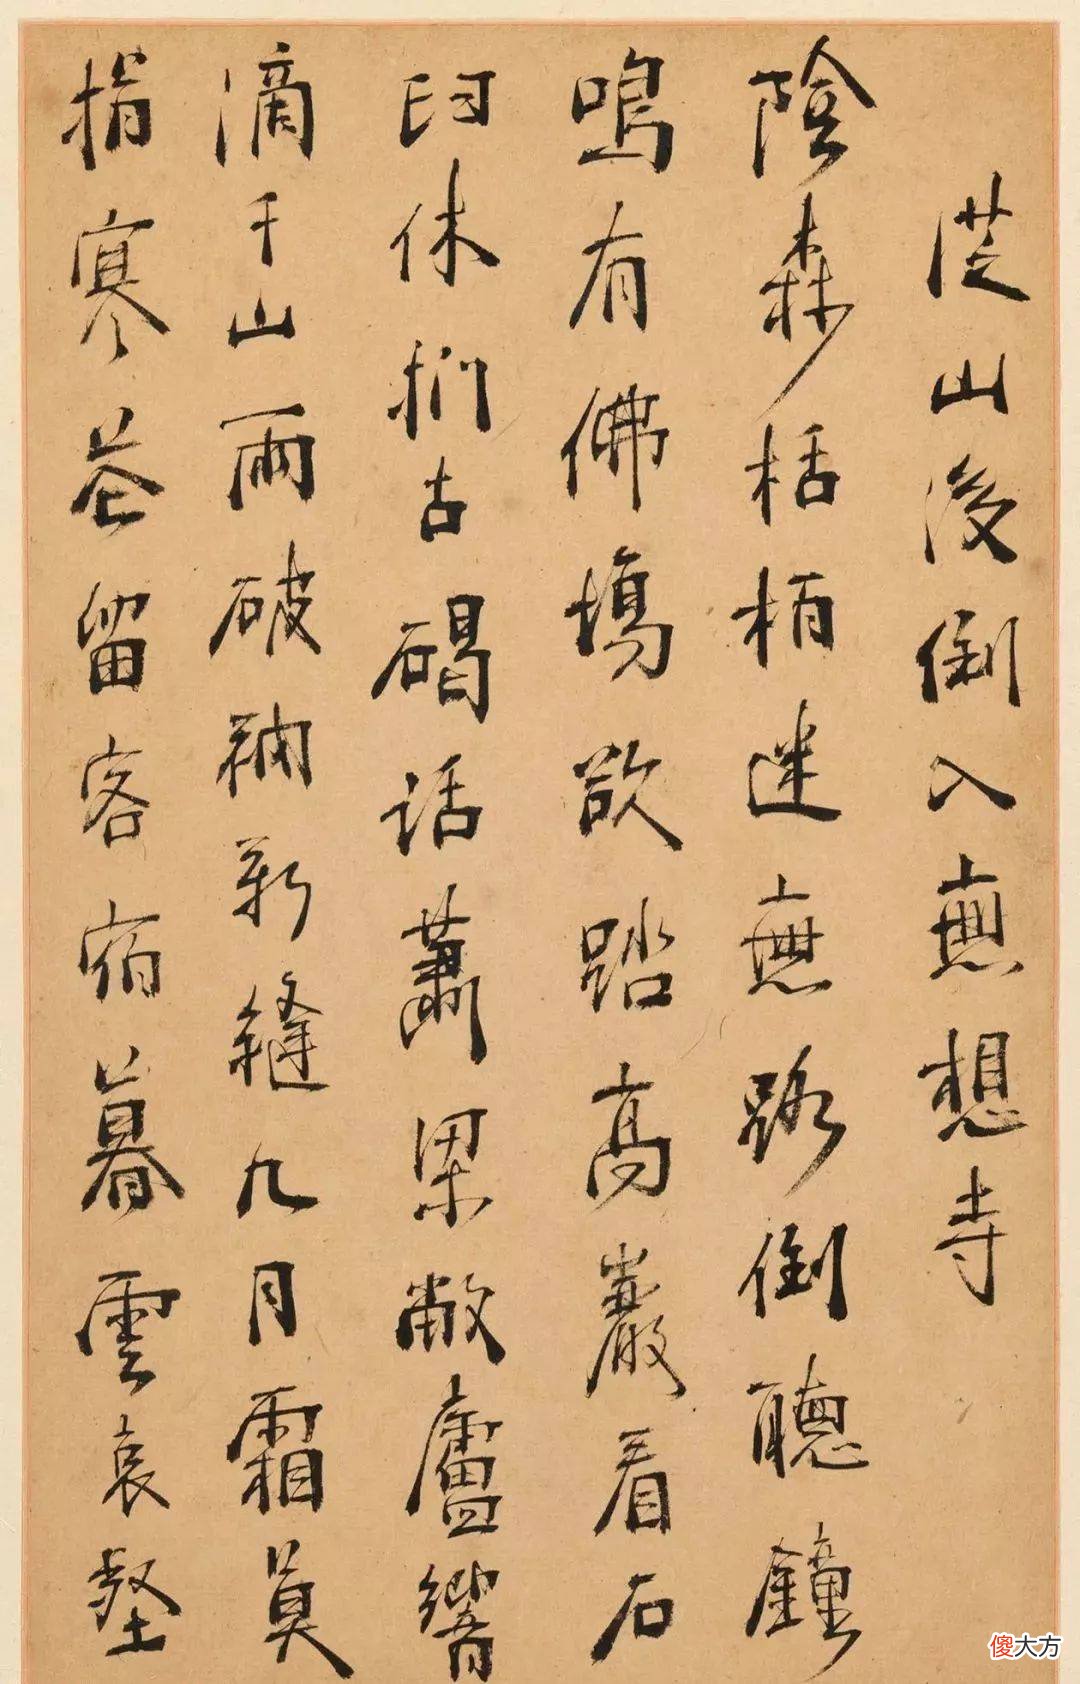 從山後倒入無想寺
陰森栝柏迷無路倒聽鐘
鳴有佛場欲踏高巖看石
臼休捫古碣話蕭梁敝廬響
滴千山雨破衲新縫九月霜莫
掃寒花留客宿暮雲哀壑
傻大方